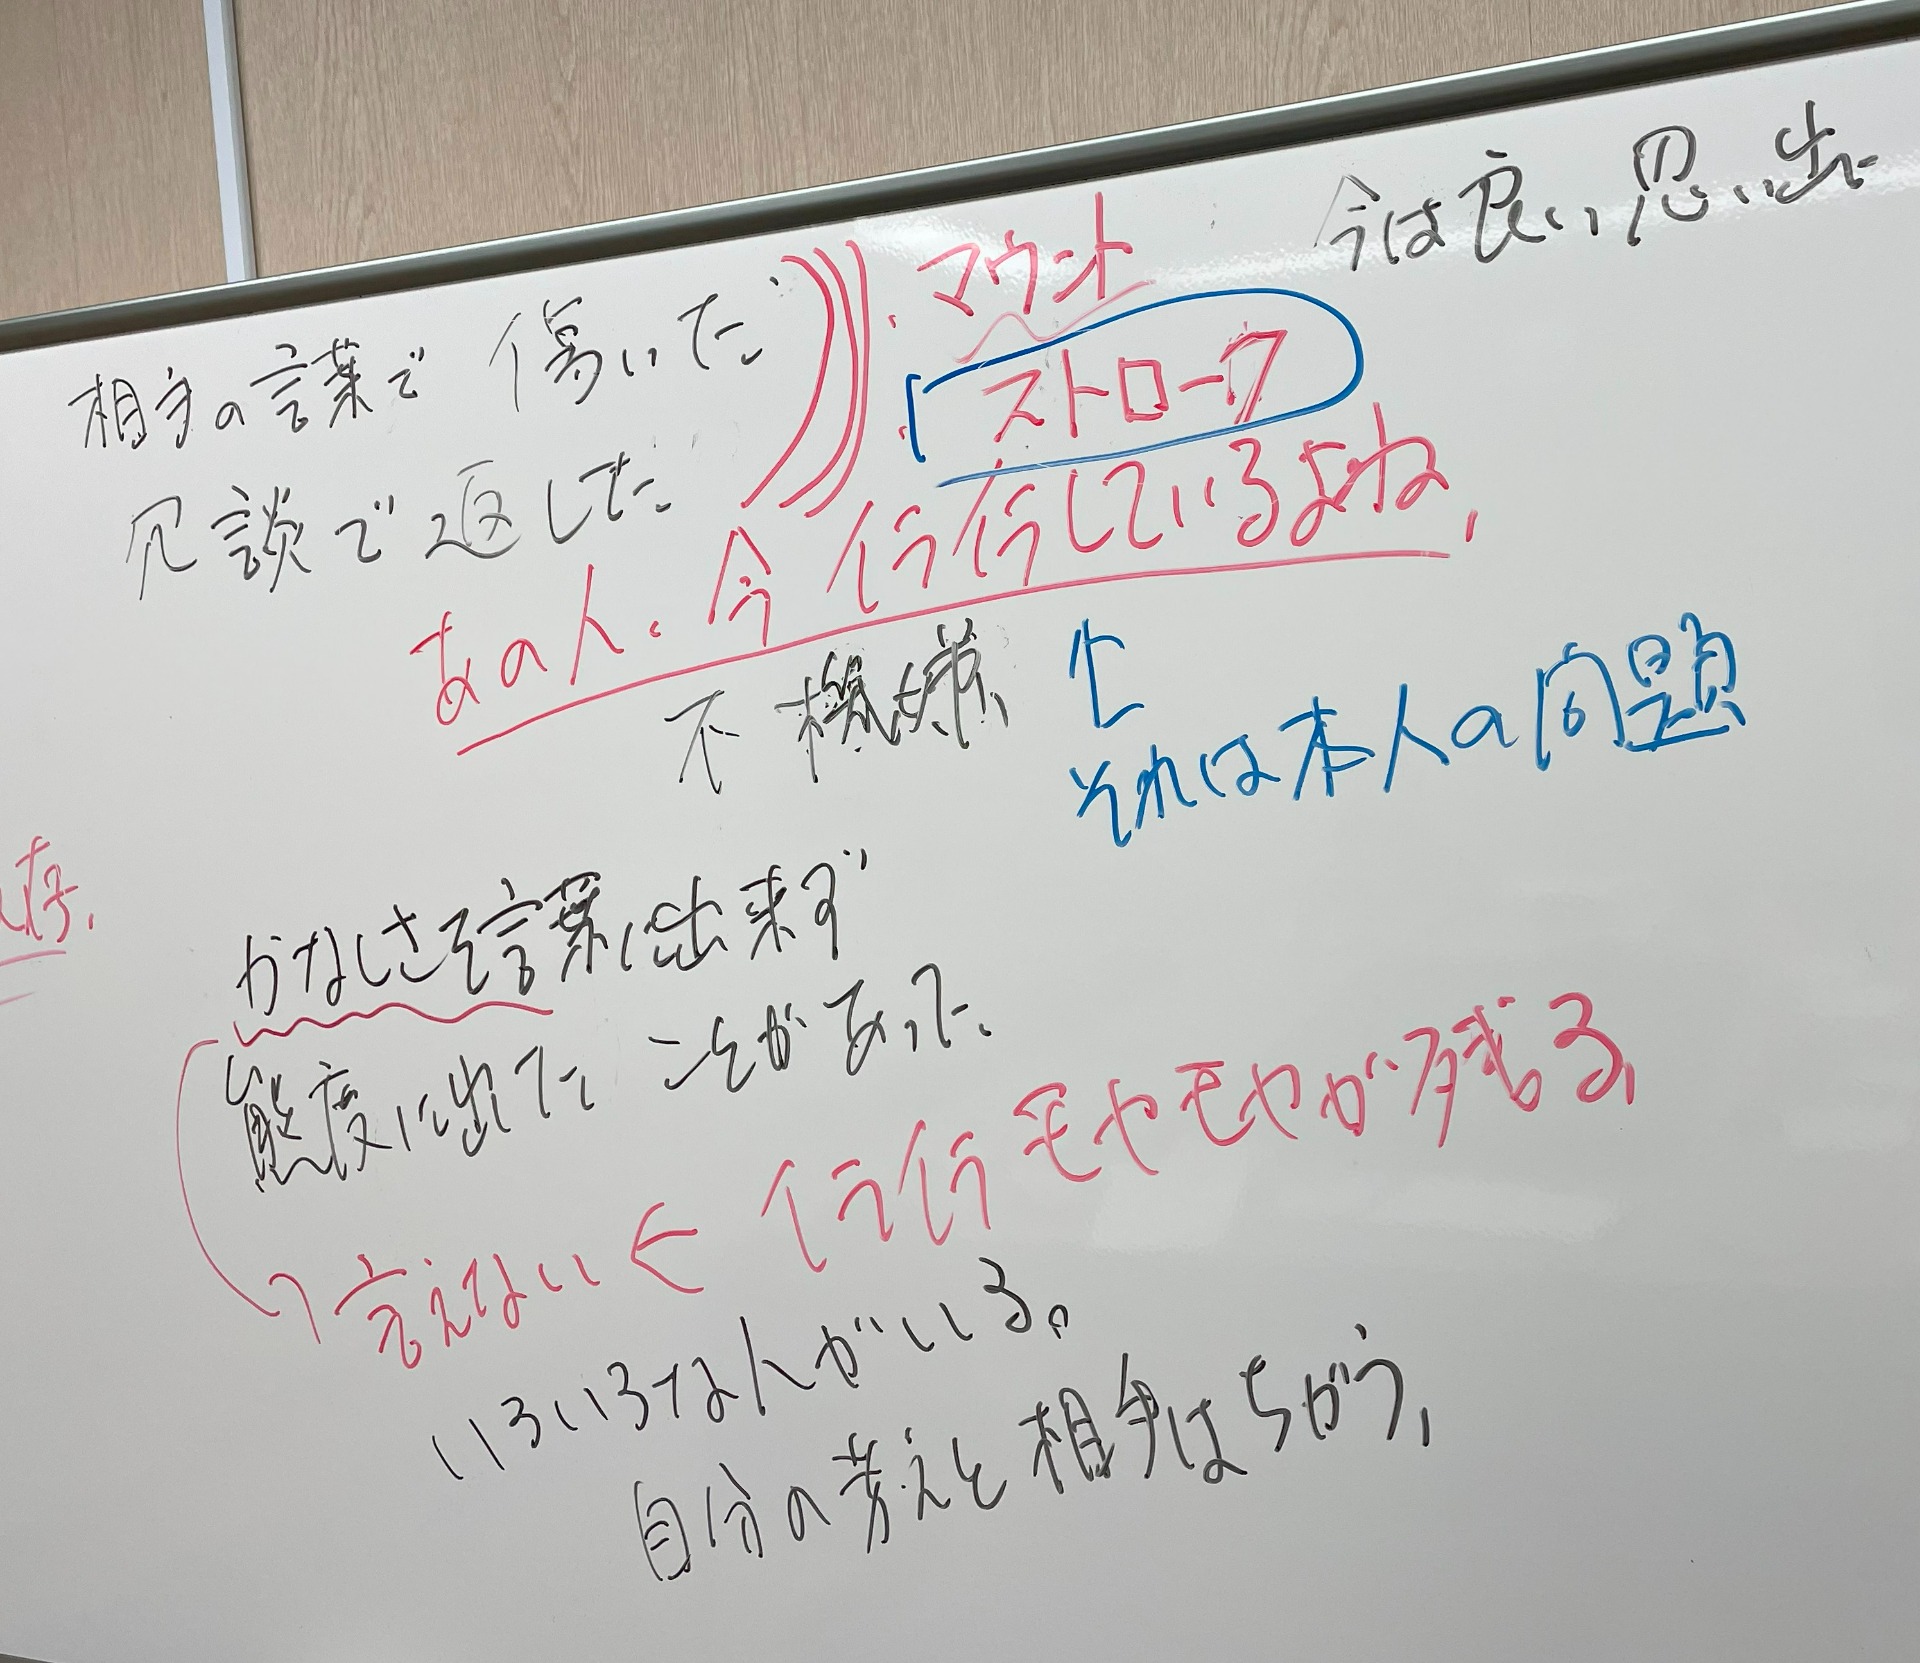 今は良い思い出
相手の言葉で 傷いた
・マウント
・ストローク
冗談で返した
あの人、今 イライラしているよね、
不機嫌
それは本人の問題
存、
かなしさを言葉に出来ず
態度に出た ことがあった
言えない ← イライラ モヤモヤが残る、
いろいろな人がいる。
自分の考えと相手はちがう、